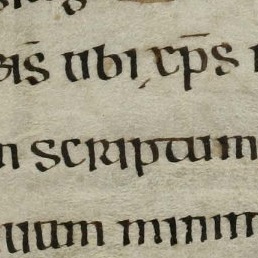 sis̄ ubi xp̄s
n scriptum
uum minim